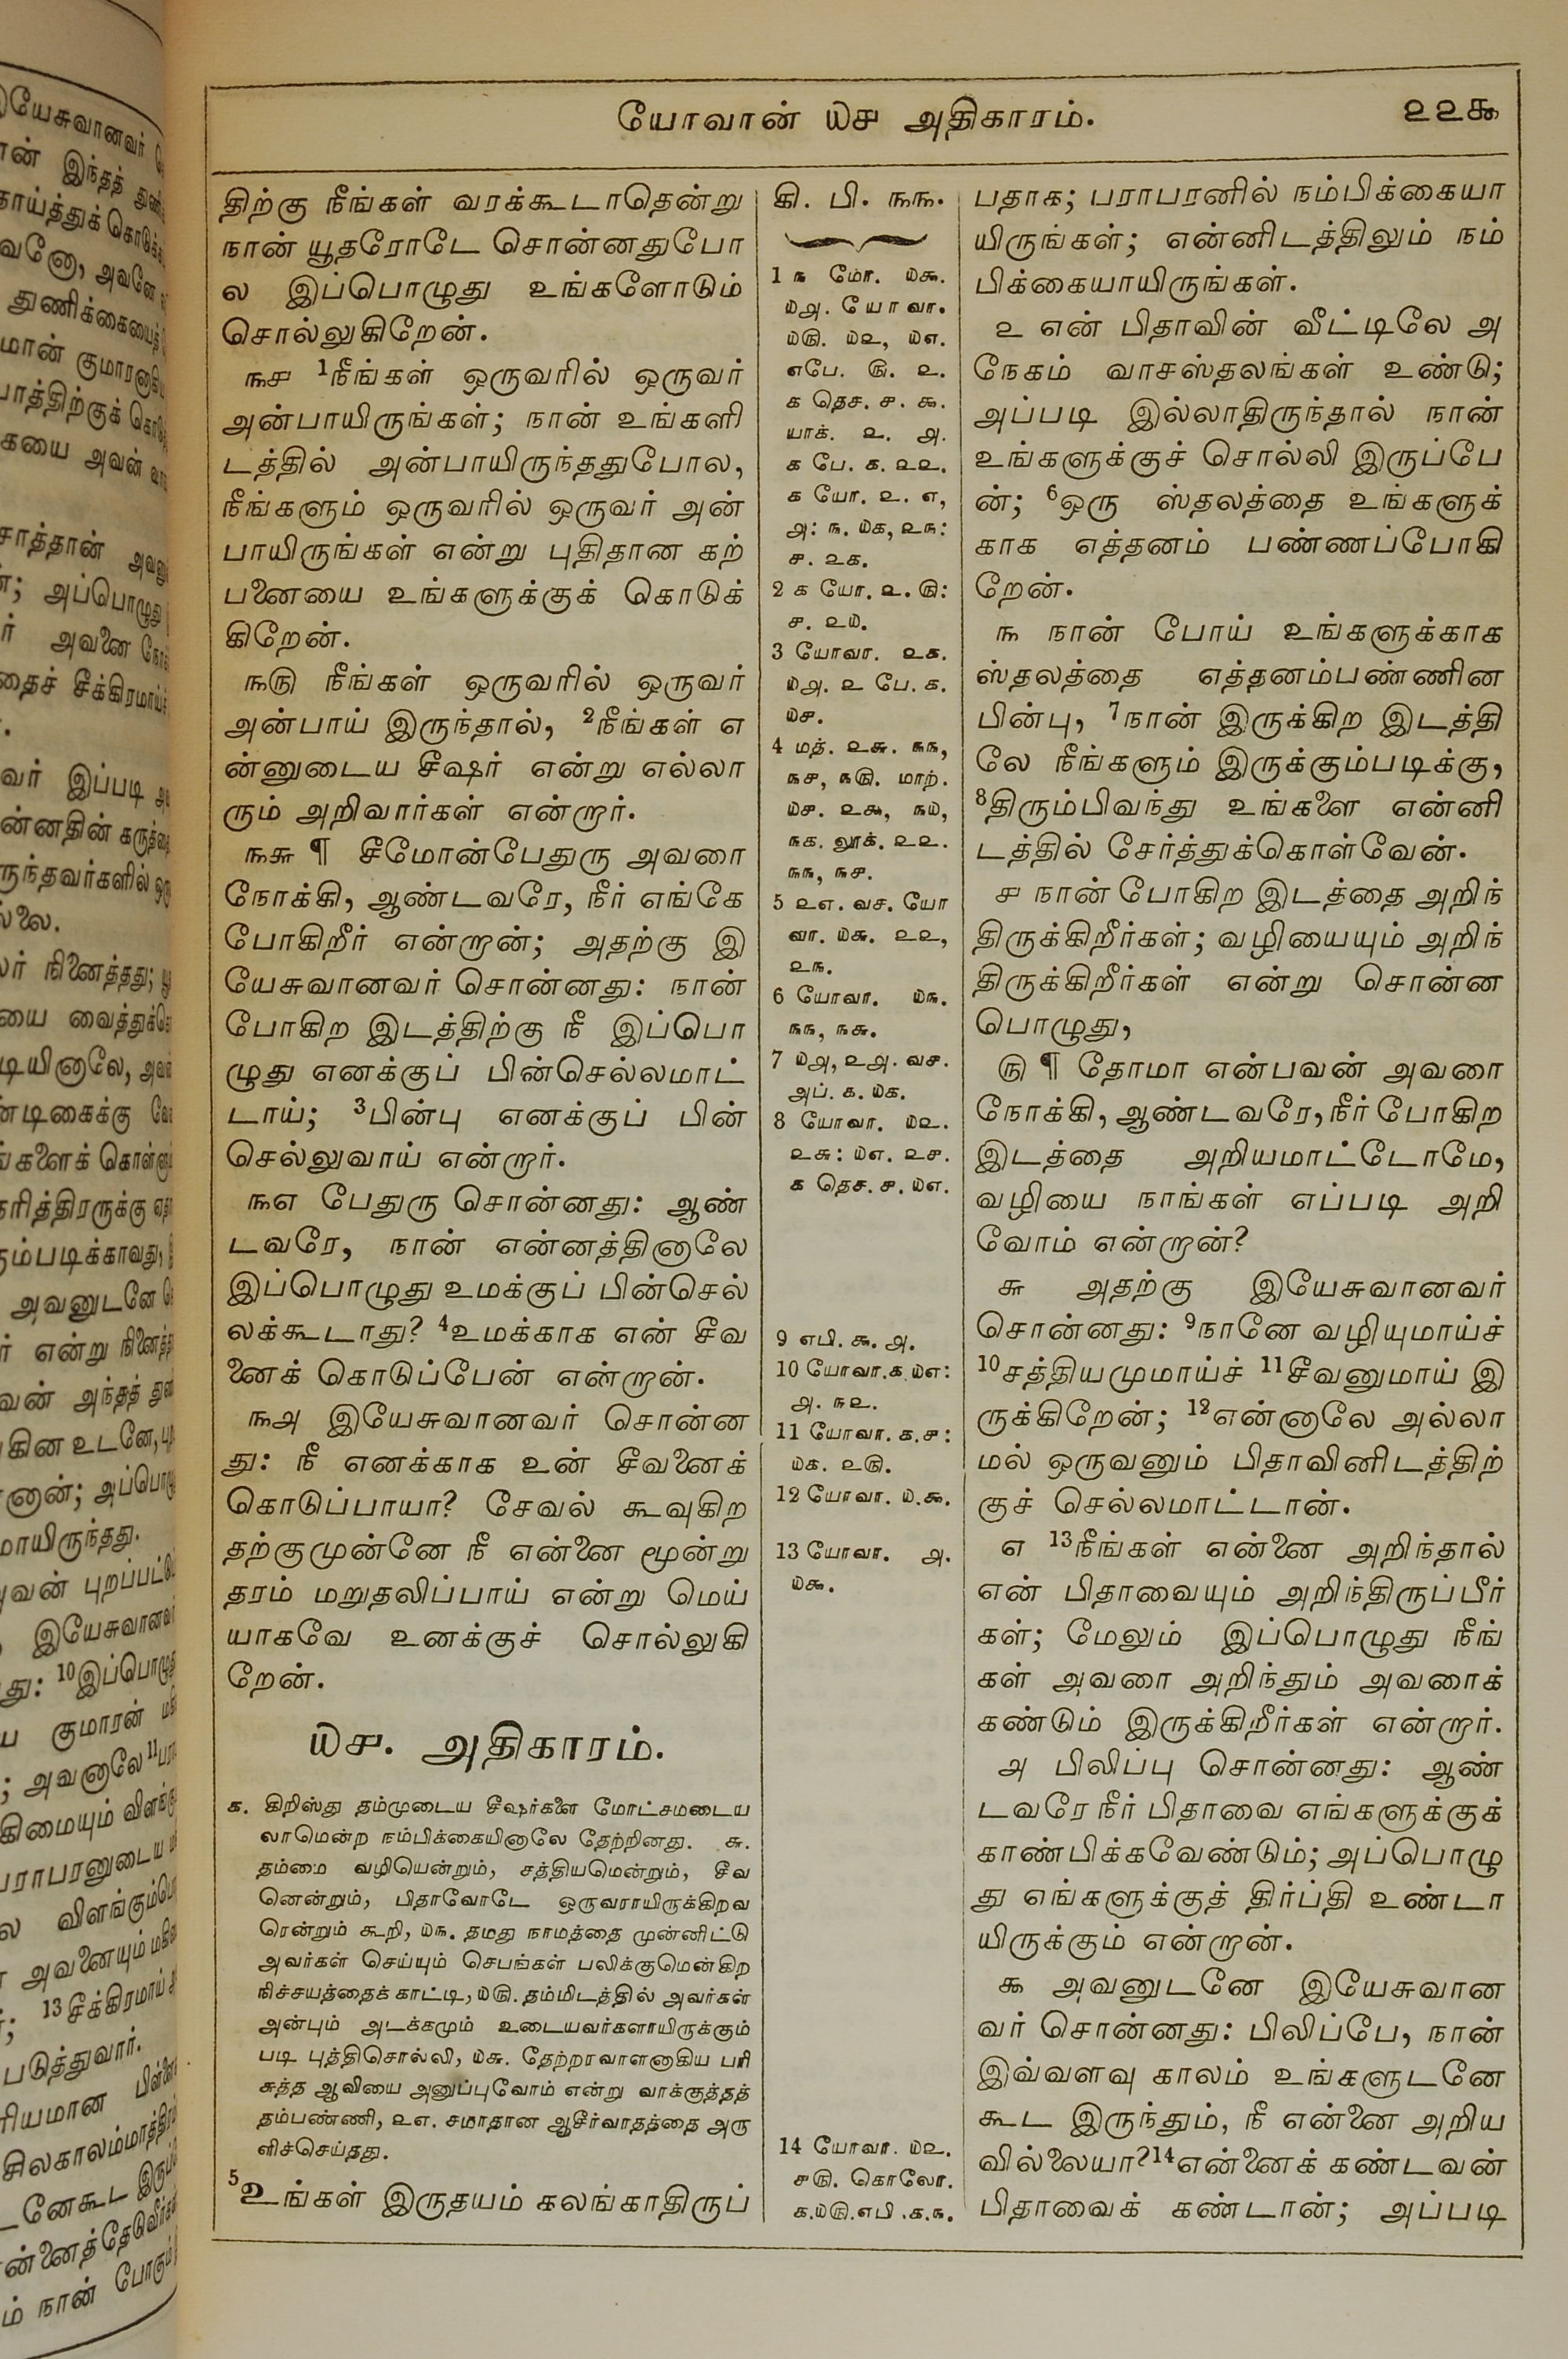 யோவான் ௰௪ அதிகாரம்.
௨௨௯
திற்கு நீங்கள் வரக்கூடாதென்று
நான் யூதரோடே சொன்னதுபோ
ல இப்பொழுது உங்களோடும்
சொல்லுகிறேன்.
௩௪ 1நீங்கள் ஒருவரில் ஒருவர்
அன்பாயிருங்கள்; நான் உங்களி
டத்தில் அன்பாயிருந்ததுபோல,
நீங்களும் ஒருவரில் ஒருவர் அன்
பாயிருங்கள் என்று புதிதான கற்
பனையை உங்களுக்குக் கொடுக்
கிறேன்.
௩௫ நீங்கள் ஒருவரில் ஒருவர்
அன்பாய் இருந்தால், 2நீங்கள் எ
ன்னுடைய சீஷர் என்று எல்லா
ரும் அறிவார்கள் என்றார்.
௩௬ ¶ சீமோன்பேதுரு அவரை
நோக்கி, ஆண்டவரே, நீர் எங்கே
போகிறீர் என்றான்; அதற்கு இ
யேசுவானவர் சொன்னது: நான்
போகிற இடத்திற்கு நீ இப்பொ
ழுது எனக்குப் பின்செல்லமாட்
டாய்; 3பின்பு எனக்குப் பின்
செல்லுவாய் என்றார்.
௩௭ பேதுரு சொன்னது: ஆண்
டவரே, நான் என்னத்தினாலே
இப்பொழுது உமக்குப் பின்செல்
லக்கூடாது? 4உமக்காக என் சீவ
னைக் கொடுப்பேன் என்றான்.
௩௮ இயேசுவானவர் சொன்ன
து: நீ எனக்காக உன் சீவனைக்
கொடுப்பாயா? சேவல் கூவுகிற
தற்குமுன்னே நீ என்னை மூன்று
தரம் மறுதலிப்பாய் என்று மெய்
யாகவே உனக்குச் சொல்லுகி
றேன்.
௰௪. அதிகாரம்.
௧. கிறிஸ்து தம்முடைய சீஷர்களை மோட்சமடைய
லாமென்ற நம்பிக்கையினாலே தேற்றினது. ௬.
தம்மை வழியென்றும், சத்தியமென்றும், சீவ
னென்றும், பிதாவோடே ஒருவராயிருக்கிறவ
ரென்றும் கூறி, ௰௩. தமது நாமத்தை முன்னிட்டு
அவர்கள் செய்யும் செபங்கள் பலிக்குமென்கிற
நிச்சயத்தைக் காட்டி, ௰௫. தம்மிடத்தில் அவர்கள்
அன்பும் அடக்கமும் உடையவர்களாயிருக்கும்
படி புத்திசொல்லி, ௰௬. தேற்றரவாளனாகிய பரி
சுத்த ஆவியை அனுப்புவோம் என்று வாக்குத்தத்
தம்பண்ணி, ௨௭. சமாதான ஆசீர்வாதத்தை அரு
ளிச்செய்தது.
5உங்கள் இருதயம் கலங்காதிருப்
கி. பி. ௩௩.
1 ௩ மோ. ௰௯.
௰௮. யோவா.
௰௫. ௰௨, ௰௭.
எபே. ௫. ௨.
௧ தெச. ௪. ௯.
யாக். ௨. ௮.
௧ பே. ௧. ௨௨.
௧ யோ. ௨. ௭,
௮: ௩. ௰௧, ௨௩:
௪. ௨௧.
2 ௧ யோ. ௨. ௫:
௪. ௨௰.
3 யோவா. ௨௧.
௰௮. ௨ பே. ௧.
௰௪.
4 மத். ௨௬. ௩௩,
௩௪, ௩௫. மாற்.
௰௪. ௨௯, ௩௰,
௩௧. லூக். ௨௨.
௩௩, ௩௪.
5 ௨௭. வச. யோ
வா. ௰௬. ௨௨,
௨௩.
6 யோவா. ௰௩.
௩௩, ௩௬.
7 ௰௮, ௨௮. வச.
அப். ௧. ௰௧.
8 யோவா. ௰௨.
௨௬: ௰௭. ௨௪.
௧ தெச. ௪. ௰௭.
9 எபி. ௯. ௮.
10 யோவா.௧.௰௭:
௮. ௩௨.
11 யோவா. ௧.௪:
௰௧. ௨௫.
12 யோவா. ௰.௯.
13 யோவா. ௮.
௰௯.
14 யோவா. ௰௨.
௪௫. கொலோ.
௧.௰௫.எபி.௧.௩.
பதாக; பராபரனில் நம்பிக்கையா
யிருங்கள்; என்னிடத்திலும் நம்
பிக்கையாயிருங்கள்.
௨ என் பிதாவின் வீட்டிலே அ
நேகம் வாசஸ்தலங்கள் உண்டு;
அப்படி இல்லாதிருந்தால் நான்
உங்களுக்குச் சொல்லி இருப்பே
ன்; 6ஒரு ஸ்தலத்தை உங்களுக்
காக எத்தனம் பண்ணப்போகி
றேன்.
௩ நான் போய் உங்களுக்காக
ஸ்தலத்தை எத்தனம்பண்ணின
பின்பு, 7நான் இருக்கிற இடத்தி
லே நீங்களும் இருக்கும்படிக்கு,
8திரும்பிவந்து உங்களை என்னி
டத்தில் சேர்த்துக்கொள்வேன்.
௪ நான் போகிற இடத்தை அறிந்
திருக்கிறீர்கள்; வழியையும் அறிந்
திருக்கிறீர்கள் என்று சொன்ன
பொழுது,
௫ ¶ தோமா என்பவன் அவரை
நோக்கி, ஆண்டவரே, நீர் போகிற
இடத்தை அறியமாட்டோமே,
வழியை நாங்கள் எப்படி அறி
வோம் என்றான்?
௬ அதற்கு இயேசுவானவர்
சொன்னது: 9நானே வழியுமாய்ச்
10சத்தியமுமாய்ச் 11சீவனுமாய் இ
ருக்கிறேன்; 12என்னாலே அல்லா
மல் ஒருவனும் பிதாவினிடத்திற்
குச் செல்லமாட்டான்.
௭ 13நீங்கள் என்னை அறிந்தால்
என் பிதாவையும் அறிந்திருப்பீர்
கள்; மேலும் இப்பொழுது நீங்
கள் அவரை அறிந்தும் அவரைக்
கண்டும் இருக்கிறீர்கள் என்றார்.
௮ பிலிப்பு சொன்னது: ஆண்
டவரே நீர் பிதாவை எங்களுக்குக்
காண்பிக்கவேண்டும்; அப்பொழு
து எங்களுக்குத் திர்ப்தி உண்டா
யிருக்கும் என்றான்.
௯ அவனுடனே இயேசுவான
வர் சொன்னது: பிலிப்பே, நான்
இவ்வளவு காலம் உங்களுடனே
கூட இருந்தும், நீ என்னை அறிய
வில்லையா?14என்னைக் கண்டவன்
பிதாவைக் கண்டான்; அப்படி